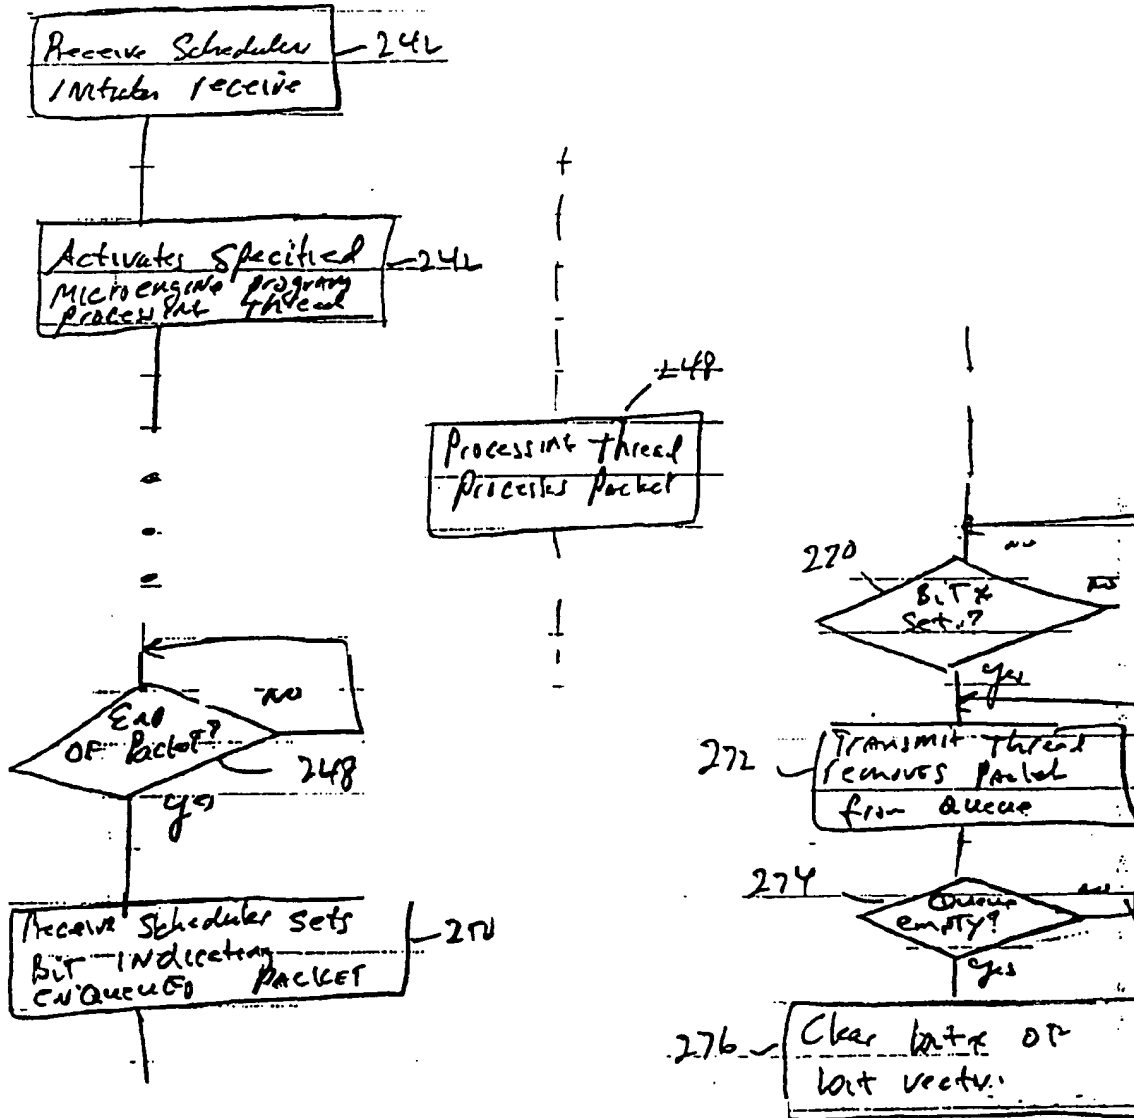 Receive Scheduler
Initiates receive
242
Activates Specified
Microengine program
processing thread
242
Processing thread
processes packet
248
End
OF Packet?
NO
248
yes
Receive Scheduler sets
BiT indicating
enqueued PACKET
250
270
BiT x
set?
no
no
yes
272
Transmit thread
removes packet
from Queue
274
Queue
empty?
no
yes
276
Clear bit x OF
bit vector